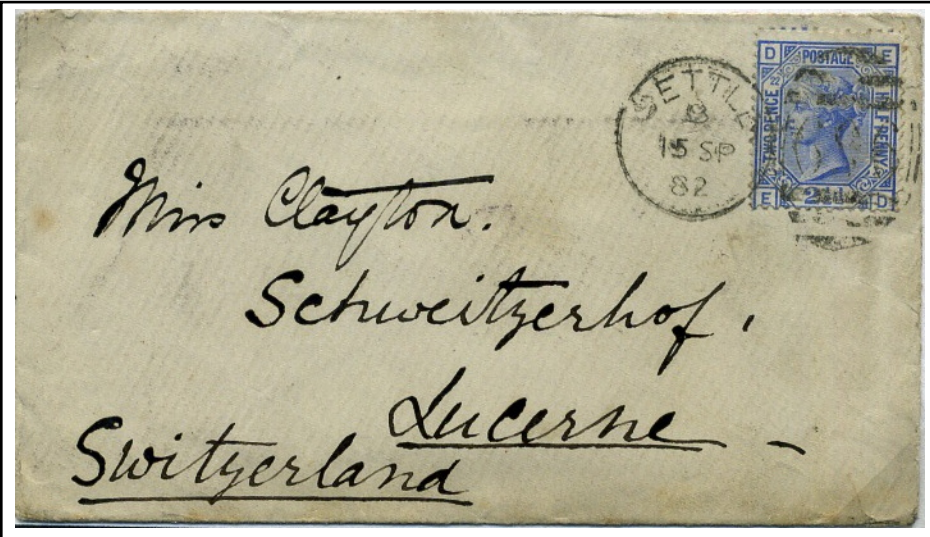 SETTLE
B
15 SP
82
D POSTAGE E
22
TWO PENCE
HALF PENNY
E 2½d D
Miss Clayton.
Schweitzerhof,
Lucerne -
Switzerland